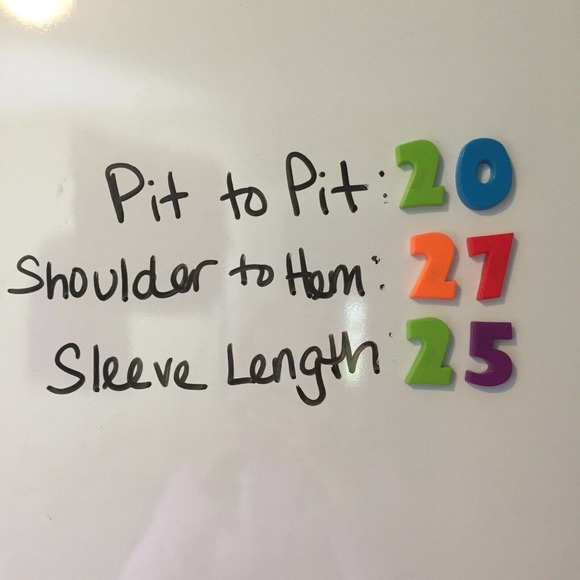 Pit to Pit: 20
Shoulder to Hem: 27
Sleeve Length 25